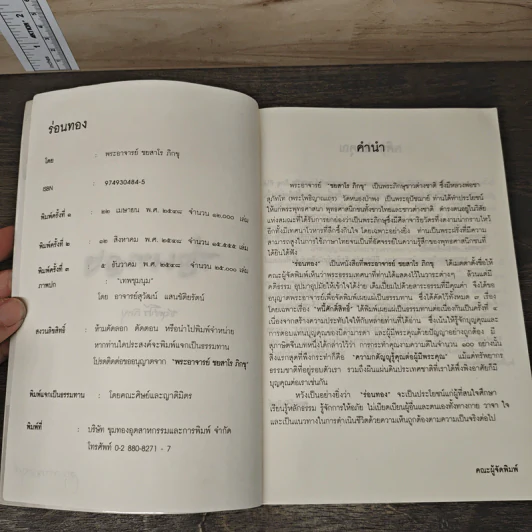 ร่อนทอง
โดย : พระอาจารย์ ชยสาโร ภิกขุ
ISBN : 974930484-5
พิมพ์ครั้งที่ ๑ : ๒๒ เมษายน พ.ศ. ๒๕๔๘ จำนวน ๑๒,๐๐๐ เล่ม
พิมพ์ครั้งที่ ๒ : ๑๒ สิงหาคม พ.ศ. ๒๕๔๘ จำนวน ๑๕,๕๕๕ เล่ม
พิมพ์ครั้งที่ ๓ : ๕ ธันวาคม พ.ศ. ๒๕๔๘ จำนวน ๒๕,๐๐๐ เล่ม
ภาพปก : "เทพชุมนุม"
โดย อาจารย์สุวัฒน์ แสนขัติยรัตน์
สงวนลิขสิทธิ์ : ห้ามคัดลอก ตัดตอน หรือนำไปพิมพ์จำหน่าย
หากท่านใดประสงค์จะพิมพ์แจกเป็นธรรมทาน
โปรดติดต่อขออนุญาตจาก "พระอาจารย์ ชยสาโร ภิกขุ"
พิมพ์แจกเป็นธรรมทาน : โดยคณะศิษย์และญาติมิตร
พิมพ์ที่ : บริษัท ชุมทองอุตสาหกรรมและการพิมพ์ จำกัด
โทรศัพท์ 0-2 880-8271 - 7
คำนำ
พระอาจารย์ "ชยสาโร ภิกขุ" เป็นพระภิกษุชาวต่างชาติ ซึ่งมีหลวงพ่อชา
สุภัทโท (พระโพธิญาณเถร) วัดหนองป่าพง เป็นพระอุปัชฌาย์ ท่านได้ทำประโยชน์
ให้แก่พระพุทธศาสนา พุทธศาสนิกชนทั้งชาวไทยและชาวต่างชาติ ดำรงตนอยู่ในวิถี
แห่งสมณะที่ได้รับการยกย่องว่าเป็นพระภิกษุซึ่งมีศีลาจาริยวัตรที่งดงามน่ากราบไหว้
อีกทั้งมีเทศนาโวหารที่ลึกซึ้งกินใจ โดยเฉพาะอย่างยิ่ง ท่านเป็นพระฝรั่งที่มีความ
สามารถสูงในการใช้ภาษาไทยจนเป็นที่อัศจรรย์ในความรู้สึกของพุทธศาสนิกชนที่
ได้ยินได้ฟัง
"ร่อนทอง" เป็นหนังสือที่พระอาจารย์ ชยสาโร ภิกขุ ได้เมตตาตั้งชื่อให้
คณะผู้จัดพิมพ์เห็นว่าพระธรรมเทศนาที่ท่านได้แสดงไว้ในวาระต่างๆ ล้วนแต่มี
คติธรรม อุปมาอุปมัยให้เข้าใจได้ง่าย เต็มเปี่ยมไปด้วยสาระธรรมที่มีคุณค่า จึงได้ขอ
อนุญาตพระอาจารย์เพื่อจัดพิมพ์เผยแผ่เป็นธรรมทาน ซึ่งได้คัดไว้ทั้งหมด ๓ เรื่อง
โดยเฉพาะเรื่อง "หนี้ศักดิ์สิทธิ์" ได้พิมพ์เผยแผ่เป็นธรรมทานต่อเนื่องกันเป็นครั้งที่ ๔
เนื่องจากสร้างความประทับใจให้กับหลายท่านที่ได้อ่าน ซึ่งเน้นให้รู้จักบุญคุณและ
การตอบแทนบุญคุณของบิดามารดา และผู้มีพระคุณด้วยปัญญาอย่างถูกต้อง มี
สุภาษิตจีนบทหนึ่งได้กล่าวไว้ว่า การกระทำคุณงามความดีในจำนวน ๑๐๐ อย่างนั้น
สิ่งแรกสุดที่พึงกระทำก็คือ "ความกตัญญูรู้คุณต่อผู้มีพระคุณ" แม้แต่ทรัพยากร
ธรรมชาติที่อยู่รอบตัวเรา รวมถึงผืนแผ่นดินประเทศชาติที่เราได้พึ่งพิงอาศัยก็มี
บุญคุณต่อเราเช่นกัน
หวังเป็นอย่างยิ่งว่า "ร่อนทอง" จะเป็นประโยชน์แก่ผู้ที่สนใจศึกษา
เรียนรู้หลักธรรม รู้จักการให้อภัย ไม่เบียดเบียนผู้อื่นและตนเองทั้งทางกาย วาจา ใจ
และเป็นแนวทางในการดำเนินชีวิตด้วยความเห็นถูกต้องตามความเป็นจริงต่อไป
คณะผู้จัดพิมพ์